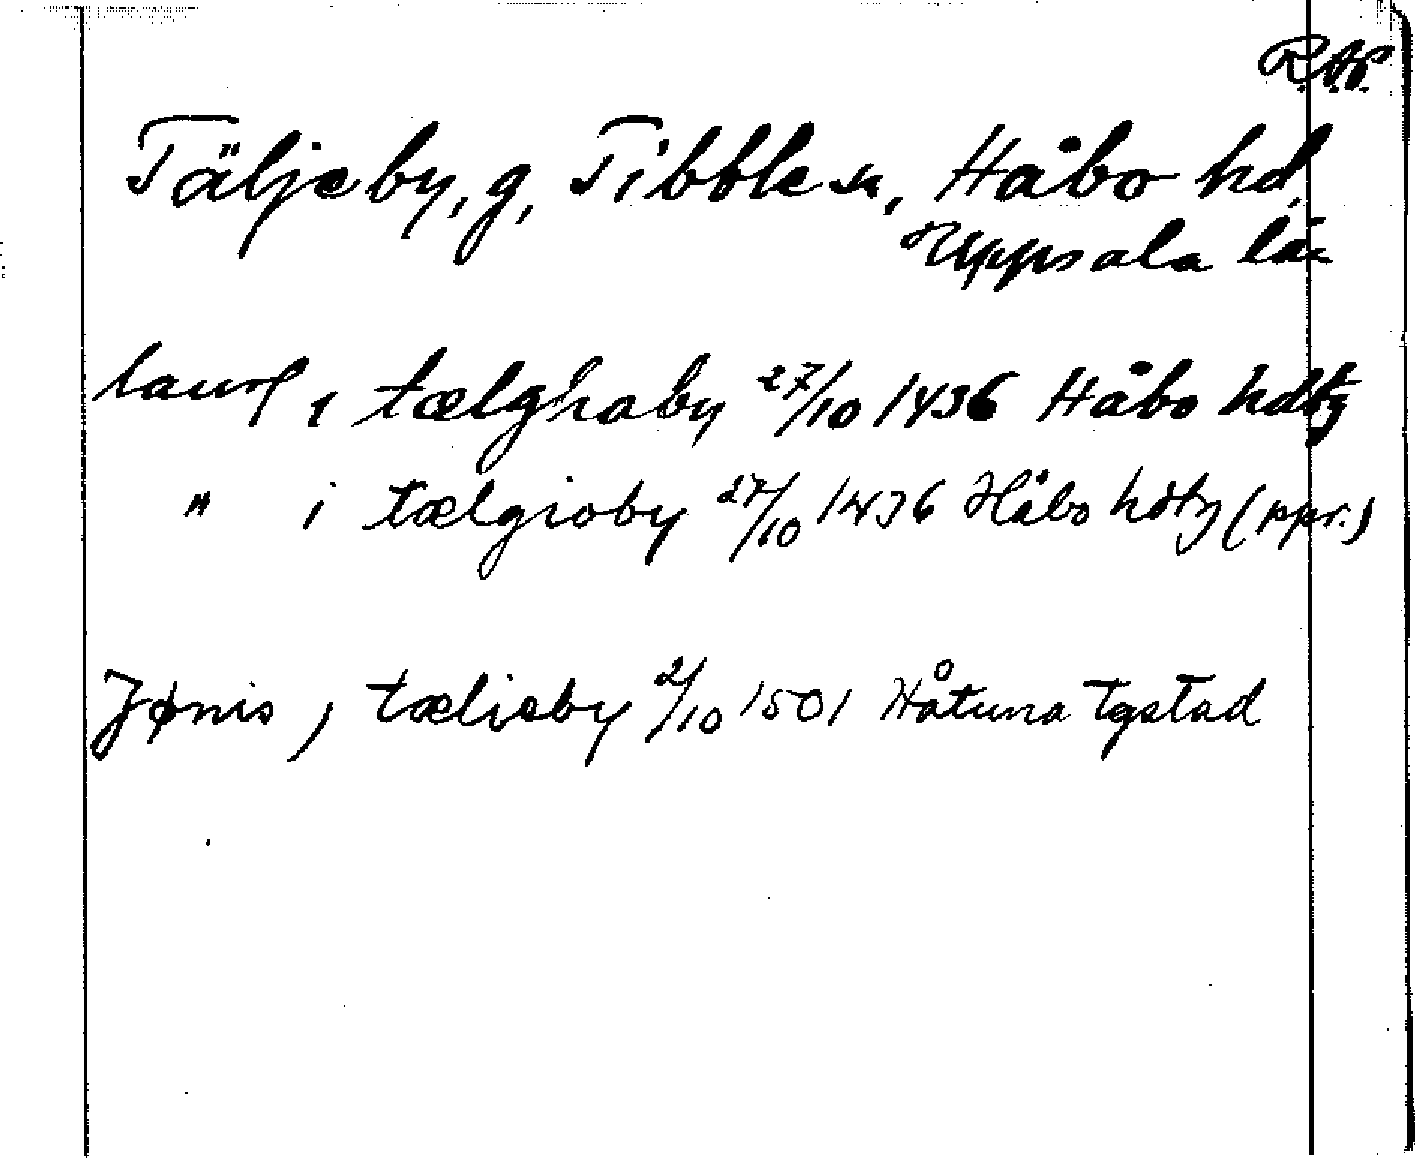 R.A.P.
Täljeby, g, Tibble sn, Håbo hd,
Uppsala län
laur i tælghaby 27/10 1436 Håbo hdtg
" i tælgioby 27/10 1436 Håbo hdtg (ppr.)
Jønis j tælieby 2/10 1501 Håtuna tgstad